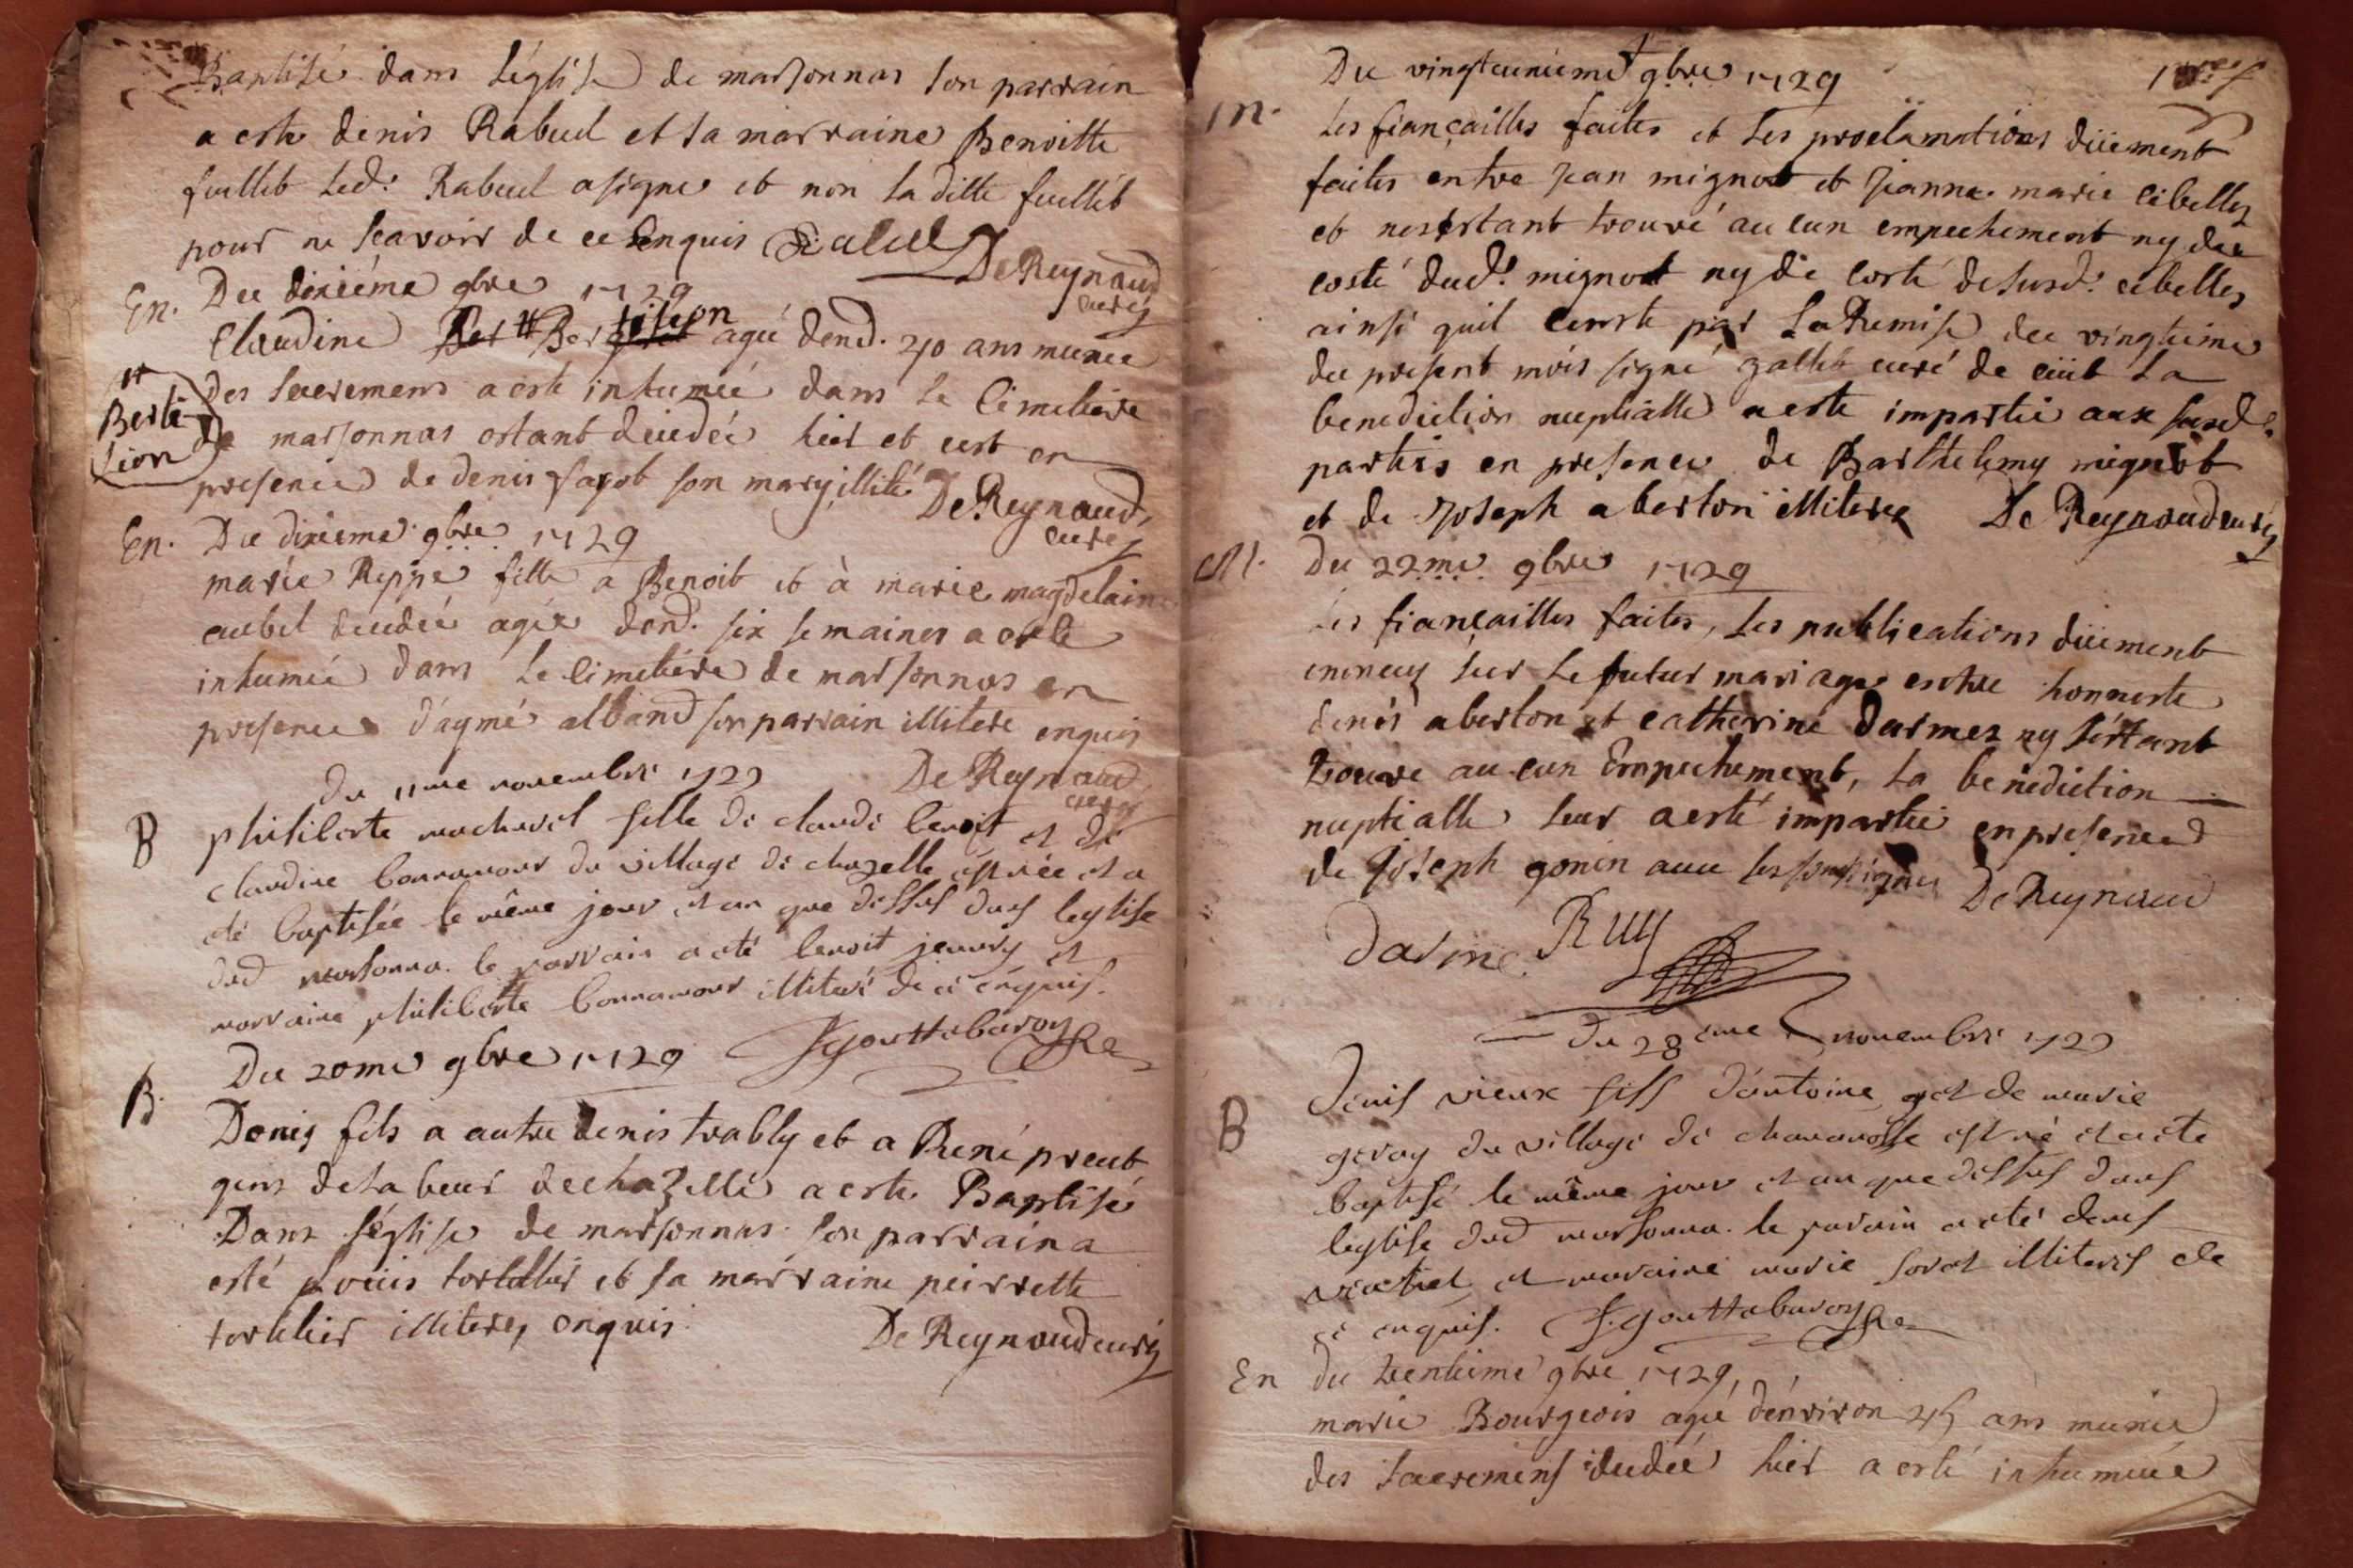 Baptisé dans L'église de marsonnas son parrain
a esté denis Rabuel et sa marraine Benoitte
fuillet Led. Rabuel a signé et non la ditte fuillet
pour ne scavoir de ce enquis Rabuel De Reynaud
curé
En. Du dixiéme 9bre 1729
Claudine Ber # Ber tilion agée dend. 40 ans munie
# Berti lion
des sacremens a esté inhumée dans le Cimetiere
de marsonnas estant decedée hier et cest en
presence de denis son mary illitéré De Reynaud,
curé
En. Du dixieme 9bre 1729
marie Reppe fille a Benoit et à marie magdelaine
aubel decedée agée dend. six semaines a esté
inhumée dans le Cimetiére de marsonnas en
presence d'aymé alband son parrain illiteré enquis
De Reynaud
curé
du 11me novembre 1729
B philiberte machurel fille de claude benoit et de
claudine bonnamour du village de chazelle est née et a
eté baptisée le même jour et an que dessus dans leglise
dud marsonna. le parrain a eté benoit et
marraine philiberte bonnamour illiteré de ce enquis.
F. gouttebaroge
Du 20me 9bre 1729
B. Denis fils a autre denis trably et a René
gens de Labeur de chazelle a esté Baptisé
Dans l'église de marsonnas son parrain a
esté Loüis tortillier et sa marraine peirrette
tortilier illiterés enquis. De Reynaud curé
Du vingteuniéme 9bre 1729
m. Les fiançailles faites et Les proclamations düement
faites entre jean mignot et jeanne marie Cibelles
et nestant trouvé aucun empechement ny du
costé dud. mignot ny de costé de cibelles
ainsi quil conste par La Remise du vingtieme
du present mois signé gallet curé de La
benediction nuptialle a esté impartie aux susd.
parties en presence de Barthelemy mignot
et de Joseph aberton illiteres De Reynaud curé
M. Du 22me 9bre 1729
Les fiançailles faites, Les publications düement
sur Le futur mariage entre honneste
denis aberton et catherine Darmez ny s'estant
trouvé aucun Empechement, La benediction
nuptialle leur a esté impartie en presence
de Joseph gonin avec les soussignés De Reynaud
du 28eme novembre 1729
B Denis vieux fils d'antoine et de marie
geray du village de est né et a eté
baptisé le même jour et an que dessus dans
leglise dud marsonna. le parain a eté denis
et maraine marie illiterés de
ce enquis. F. gouttebaroge
En du trentieme 9bre 1729,
marie Bourgeois agée d'environ 45 ans munie
des sacremens decedée hier a esté inhumée